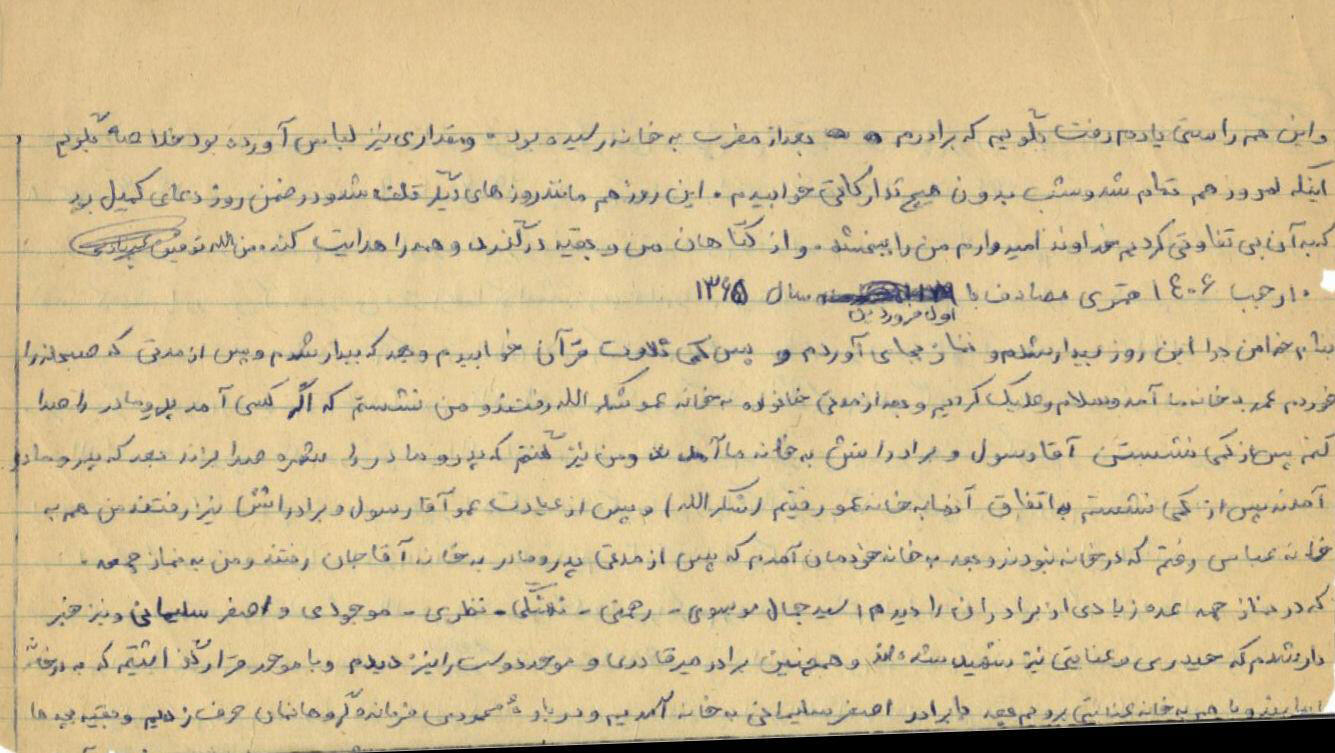 و این هم راستی یادم رفت بگویم که برادرم بعد از مغرب به خانه رسیده بود. و مقداری نیز لباس آورده بود خلاصه بگویم
اینکه امروز هم تمام شد و شب بدون هیچ تدارکاتی خوابیدم. این روز هم مانند روزهای دیگر تلف شد و در ضمن روز دعای کمیل بود
که به آن بی تفاوتی کردیم خداوند امیدوارم من را ببخشد. و از گناهان من و بقیه درگذرد و همه را هدایت کند. من الله توفیق
۱۰ رجب ۱۴۰۶ هجری مصادف با اول فروردین سال ۱۳۶۵
بنام خدا من در این روز بیدار شدم و نماز بجای آوردم و پس کمی تلاوت قرآن خوابیدم و بعد که بیدار شدم و پس از مدتی که صبحانه را
خوردم عمو به خانه ما آمد و سلام و علیک کردیم و بعد از مدتی خانواده به خانه عمو شکر الله رفتند و من نشستم که اگر کسی آمد پدر و مادر را صدا
کنم پس از کمی نشستن آقا رسول و برادرانش به خانه ما آمدند و من نیز گفتم که پدر و مادر را صدا بزند بعد که پدر و مادر
آمدند پس از کمی نشستم به اتفاق آنها به خانه عمو رفتیم (شکر الله) و پس از عیادت عمو آقا رسول و برادرانش نیز رفتند من هم به
خانه عباسی رفتم که در خانه نبودند و بعد به خانه خودمان آمدم که پس از مدتی پدر و مادر به خانه آقا جان رفتند و من به نماز جمعه.
که در نماز جمعه عده زیادی از برادران را دیدم سید جمال موسوی - رحمتی - تفنگی - نظری - موجودی و اصغر سلیمانی و نیز خبر
دار شدم که حیدری و عنایتی نیز شهید شده اند و همچنین برادر میر قادری و موحد دوست را نیز دیدم و با موحد قرار گذاشتیم که به در خانه
به خانه عنایتی برویم بعد با برادر اصغر سلیمانی به خانه آمدیم و درباره محمودی فرمانده گروهانمان حرف زدیم و بقیه بچه ها